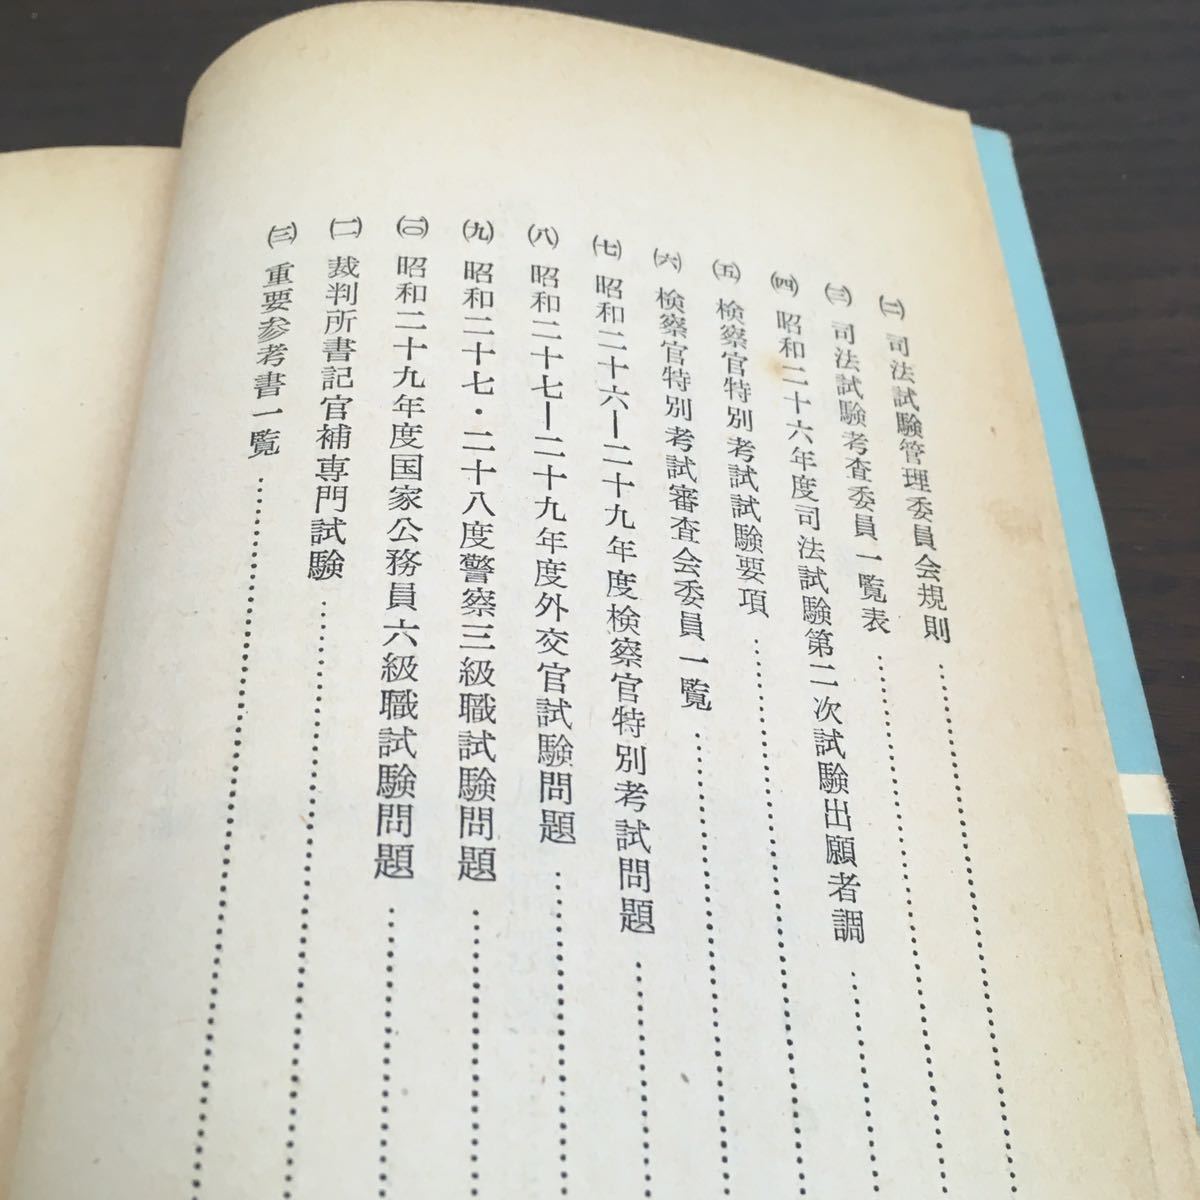 ㈡ 司法試験管理委員会規則
㈢ 司法試験考査委員一覧表
㈣ 昭和二十六年度司法試験第二次試験出願者調
㈤ 検察官特別考試試験要項
㈥ 検察官特別考試審査会委員一覧
㈦ 昭和二十六―二十九年度検察官特別考試問題
㈧ 昭和二十七―二十九年度外交官試験問題
㈨ 昭和二十七・二十八度警察三級職試験問題
(一〇) 昭和二十九年度国家公務員六級職試験問題
(一一) 裁判所書記官補専門試験
(一二) 重要参考書一覧